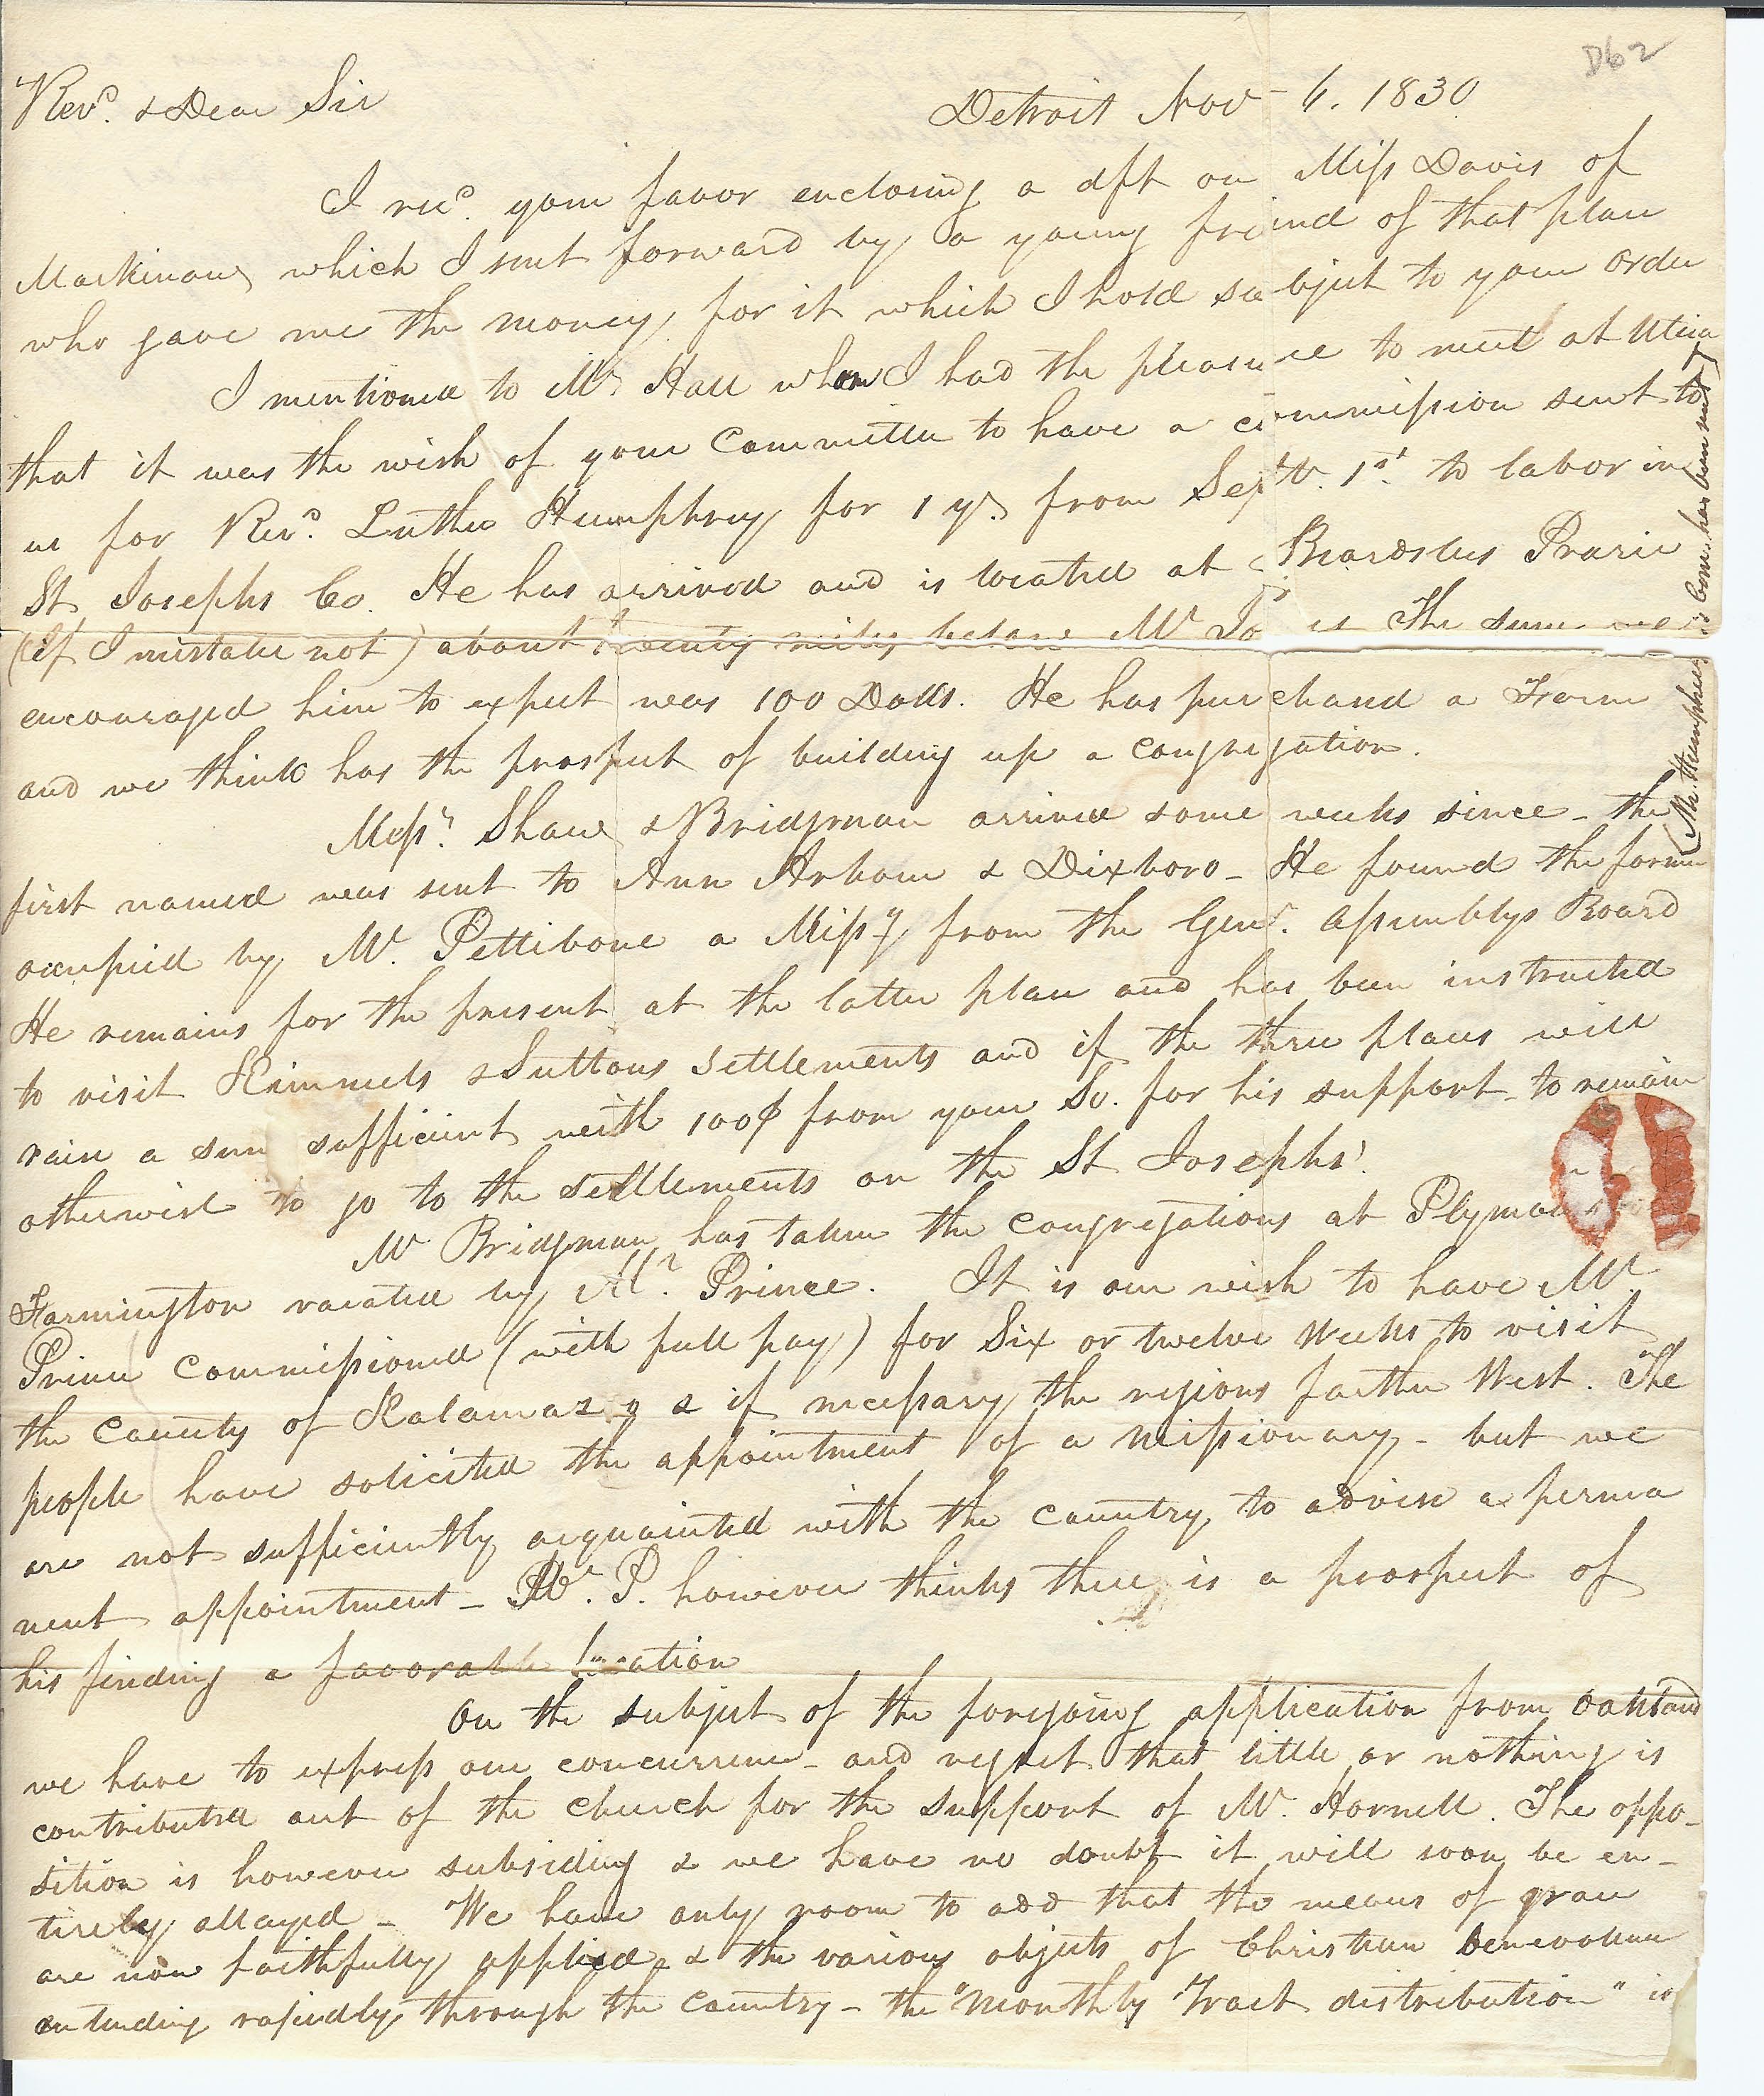 D62
Revd. & Dear Sir
Detroit Nov - 6. 1830
I recd. your favor enclosing a dft on Miss Davis of
Mackinaw which I sent forward by a young friend of that place
who gave me the money for it which I hold subject to your order
I mentioned to Mr. Hall when I had the pleasure to meet at Utica
that it was the wish of your Committee to have a commission sent to
us for Revd. Luther Humphrey for 1 yr. from Sept. 1st. to labor in
St Josephs Co. He has arrived and is located at Beardslees Prarie
(if I mistake not) about twenty miles below Mr Jo is The sum we
encouraged him to expect was 100 Dolls. He has purchased a Farm
and we think has the prospect of building up a congregation.
Messrs. Shaw & Bridgman arrived some weeks since - the
first named was sent to Ann Arbour & Dixboro - He found the former
occupied by Mr. Pettibone a Missy from the Genl. Assemblys Board
He remains for the present at the latter place and has been instructed
to visit Kimmels & Suttons settlements and if the three places will
raise a sum sufficient with 100$ from your So. for his support - to remain
otherwise to go to the settlements on the St Josephs'.
Mr Bridgman has taken the congregations at Plymo
Farmington vacated by Mr. Prince. It is our wish to have Mr.
Prince commissioned (with full pay) for Six or twelve weeks to visit
the County of Kalamaz & if necessary the regions farther West. The
people have solicited the appointment of a missionary - but we
are not sufficiently acquainted with the country to advise a perma
nent appointment - Mr. P. however thinks there is a prospect of
his finding a favorable location
On the subject of the foregoing application from Oakland
we have to express our concurrence - and regret that little or nothing is
contributed out of the church for the support of Mr. Hornell. The oppo-
sition is however subsiding & we have no doubt it will soon be en-
tirely allayed - We have only room to add that the means of grace
are now faithfully applied & the various objects of Christian benevolence
extending rapidly through the country - the "Monthly Tract distribution" is
(Mr. Humphreys Com. has been sent)